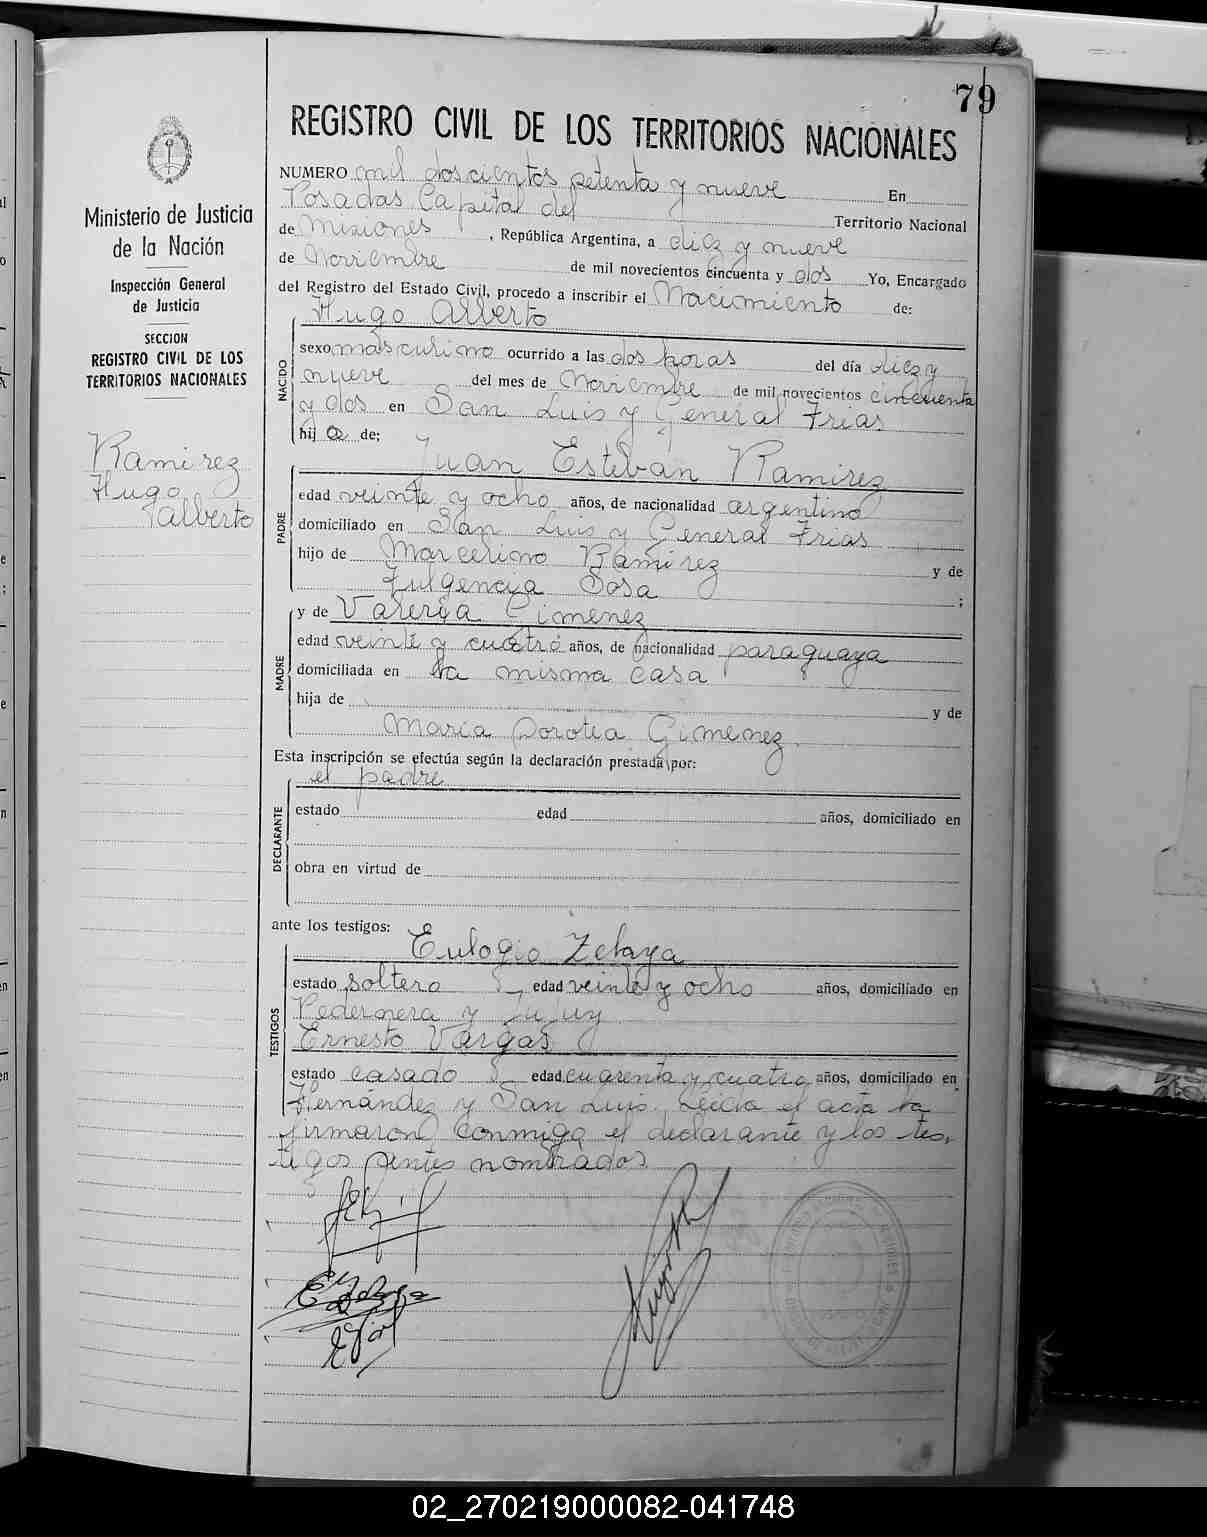 79
REGISTRO CIVIL DE LOS TERRITORIOS NACIONALES
Ministerio de Justicia
de la Nación
Inspección General
de Justicia
SECCION
REGISTRO CIVIL DE LOS
TERRITORIOS NACIONALES
Ramirez
Hugo
Alberto
NUMERO mil doscientos setenta y nueve En
Posadas Capital del Territorio Nacional
de Misiones, República Argentina, a diez y nueve
de Noviembre de mil novecientos cincuenta y dos Yo, Encargado
del Registro del Estado Civil, procedo a inscribir el Nacimiento de:
Hugo Alberto
NACIDO
sexo masculino ocurrido a las dos horas del día diez y
nueve del mes de Noviembre de mil novecientos cincuenta
y dos en San Luis y General Frias
hijo de:
Juan Esteban Ramirez
PADRE
edad veinte y ocho años, de nacionalidad argentino
domiciliado en San Luis y General Frias
hijo de Marcelino Ramirez y de
Fulgencia Sosa ;
y de Valeria Gimenez
MADRE
edad veinte y cuatro años, de nacionalidad paraguaya
domiciliada en la misma casa
hija de y de
Maria Dorotea Gimenez
Esta inscripción se efectúa según la declaración prestada por:
el padre
DECLARANTE
estado edad años, domiciliado en
obra en virtud de
ante los testigos:
Eulogio Zelaya
TESTIGOS
estado soltero edad veinte y ocho años, domiciliado en
Pedernera y Jujuy
Ernesto Vargas
estado casado edad cuarenta y cuatro años, domiciliado en
Hernandez y San Luis. Leida el acta la
firmaron conmigo el declarante y los tes-
tigos antes nombrados
02_270219000082-041748